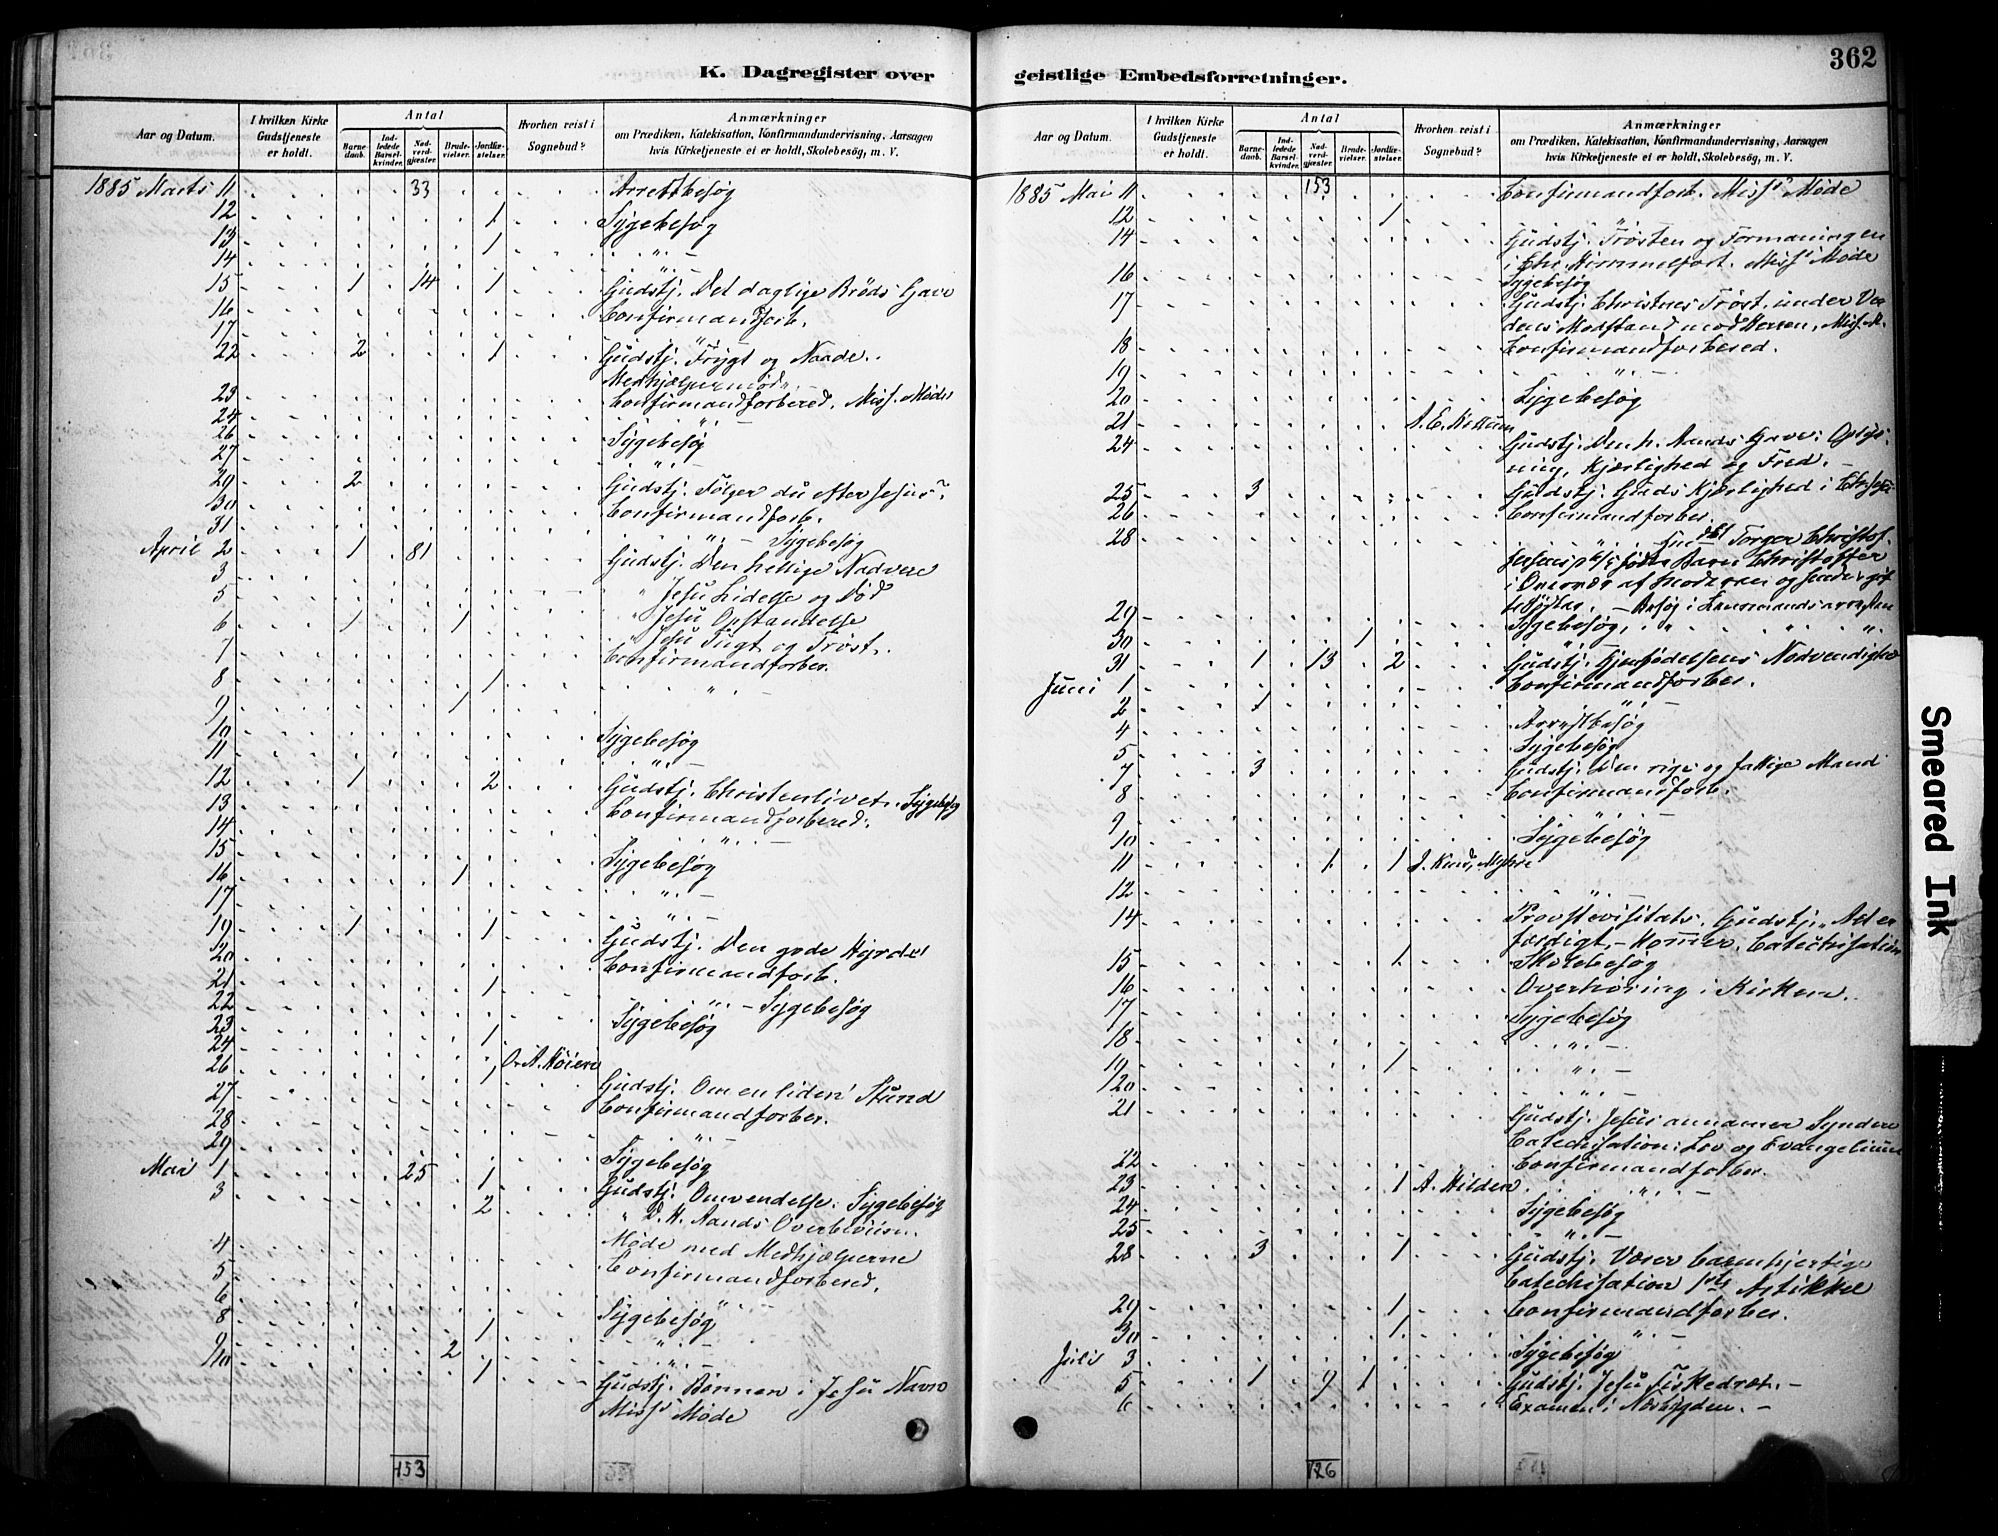 362
K. Dagregister over
geistlige Embedsforretninger.
Aar og Datum.
I hvilken Kirke Gudstjeneste er holdt.
Antal
Barnedaab.
Indledede Barselkvinder.
Nadverdgjæster.
Brudevielser.
Jordfæstelser.
Hvorhen reist i Sognebud?
Anmærkninger
om Prædiken, Katekisation, Konfirmandundervisning, Aarsagen
hvis Kirketjeneste ei er holdt, Skolebesøg, m. V.
1885 Marts 11 33 Arrestbesøg
12 1 Sygebesøg
13 1 " -
14 "
15 1 14 1 Gudstj. Det daglige Brøds Gave
16 Confirmandforb.
17 "
22 2 1 Gudstj. Frygt og Naade.
Medhjælpermøde.
23 Confirmandforbered. Miss. Møde
24 "
26 Sygebesøg
27 "
29 2 Gudstj. Følger du efter Jesus?
30 Confirmandforb.
31 " - Sygebesøg
April 2 1 81 Gudstj. Den hellige Nadvere
3 " Jesu Lidelse og Død
5 " Jesu Opstandelse
6 1 1 Jesu Tugt og Trøst.
7 Confirmandforber.
8 1 " -
9 1
10 Sygebesøg
11 "
12 1 2 Gudstj. Christenlivet. Sygebesøg
13 Confirmandforbered.
14 " -
15 Sygebesøg
16 1 " -
17 " -
19 1 1 Gudstj. Den gode Hyrde
20 Confirmandforb.
21 1
22 " - Sygebesøg
23 Sygebesøg
24 1
26 1 A. Høiere
Gudstj. Om en liden Stund
27 Confirmandforber.
28 " -
29 Sygebesøg
Mai 1 25 1 Gudstj. Omvendelse. Sygebesøg
3 2 " D. H. Aands Overbeviisn.
4 Møde med Medhjælperne
5 Confirmandforbered.
6 "
8 1 Sygebesøg
9 2 " -
10 1 Gudstj. Bønnen i Jesu Navn
Miss. Møde
153
Aar og Datum.
I hvilken Kirke Gudstjeneste er holdt.
Antal
Barnedaab.
Indledede Barselkvinder.
Nadverdgjæster.
Brudevielser.
Jordfæstelser.
Hvorhen reist i Sognebud?
Anmærkninger
om Prædiken, Katekisation, Konfirmandundervisning, Aarsagen
hvis Kirketjeneste ei er holdt, Skolebesøg, m. V.
1885 Mai 11 153 Confirmandforb. Miss. Møde
12 1 "
14 Gudstj. Trøsten og Formaningen
i Chr. Himmelfart. Miss. Møde
16 Sygebesøg
17 Gudstj. Christnes Trøst under Verdens Modstand mod Herren, Miss. M.
18 Confirmandforbered.
19 " -
20 Sygebesøg
21 A. E.
24 Gudstj. Den h. Aands Gave: Oplysning, Kjærlighed og Fred.
25 3 Gudstj. Guds Kjærlighed i
26 Confirmandforber.
28 Torger Christof
fødte Barn Christoffer
af Moderen og
- Besøg i
29 Sygebesøg, "
30 1
31 1 13 2 Gudstj. Gjenfødelsens Nødvendighed
Juni 1 Confirmandforber.
2 1 " -
4 Arrestbesøg
5 Sygebesøg
7 3 Gudstj. Den rige og fattige Mand
8 Confirmandforb.
9 "
10 Sygebesøg
11 1 1 J. Knud, Myhre
12 " -
14 Provstevisitats. Gudstj. Alt er
færdigt, - Kommer. Catechisation
15 1 Skolebesøg
16 Overhøring i Kirken.
17 Sygebesøg
18 " -
19 1 " -
20 " -
21 Gudstj. Jesus annamer Syndere
Catechisation: Lov og Evangelium
22 Confirmandforber.
23 1 A. Hilden " -
24 Sygebesøg
25 " -
28 3 1 Gudstj. Værer barmhjertige
Catechisation 1ste Artikkel
29 1 Confirmandforber.
30 1 " -
Juli 3 Sygebesøg
5 1 9 1 Gudstj. Jesu Fiskedræt. -
6 Examen i Nørbygden. -
126
Smeared Ink